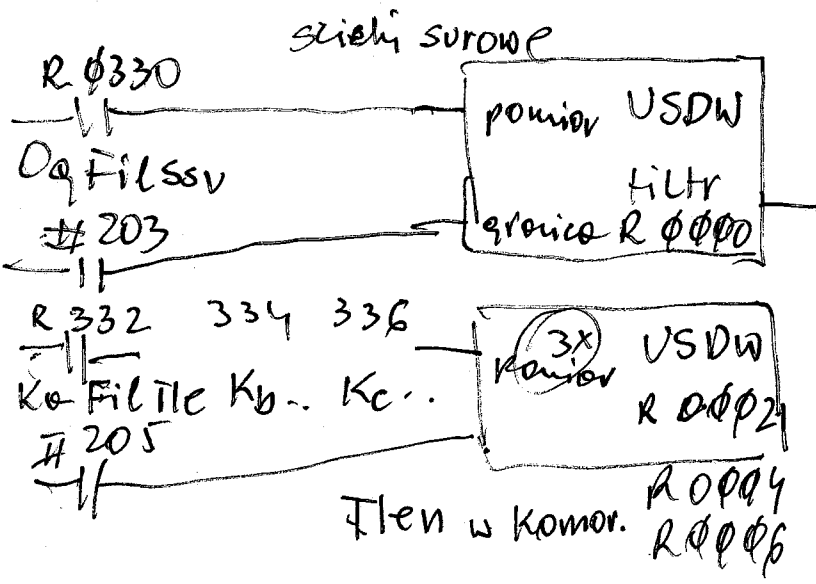 ścieki surowe
R Ø330
pomiar USDW
Oq Fil SSV
filtr
# 203
granica R ØØØØ
R 332 334 336
3x
pomiar USDW
Ka Fil Tle Kb.. Kc..
R ØØØ2
# 205
Tlen w komor. R 0ØØ4
R ØØØ6